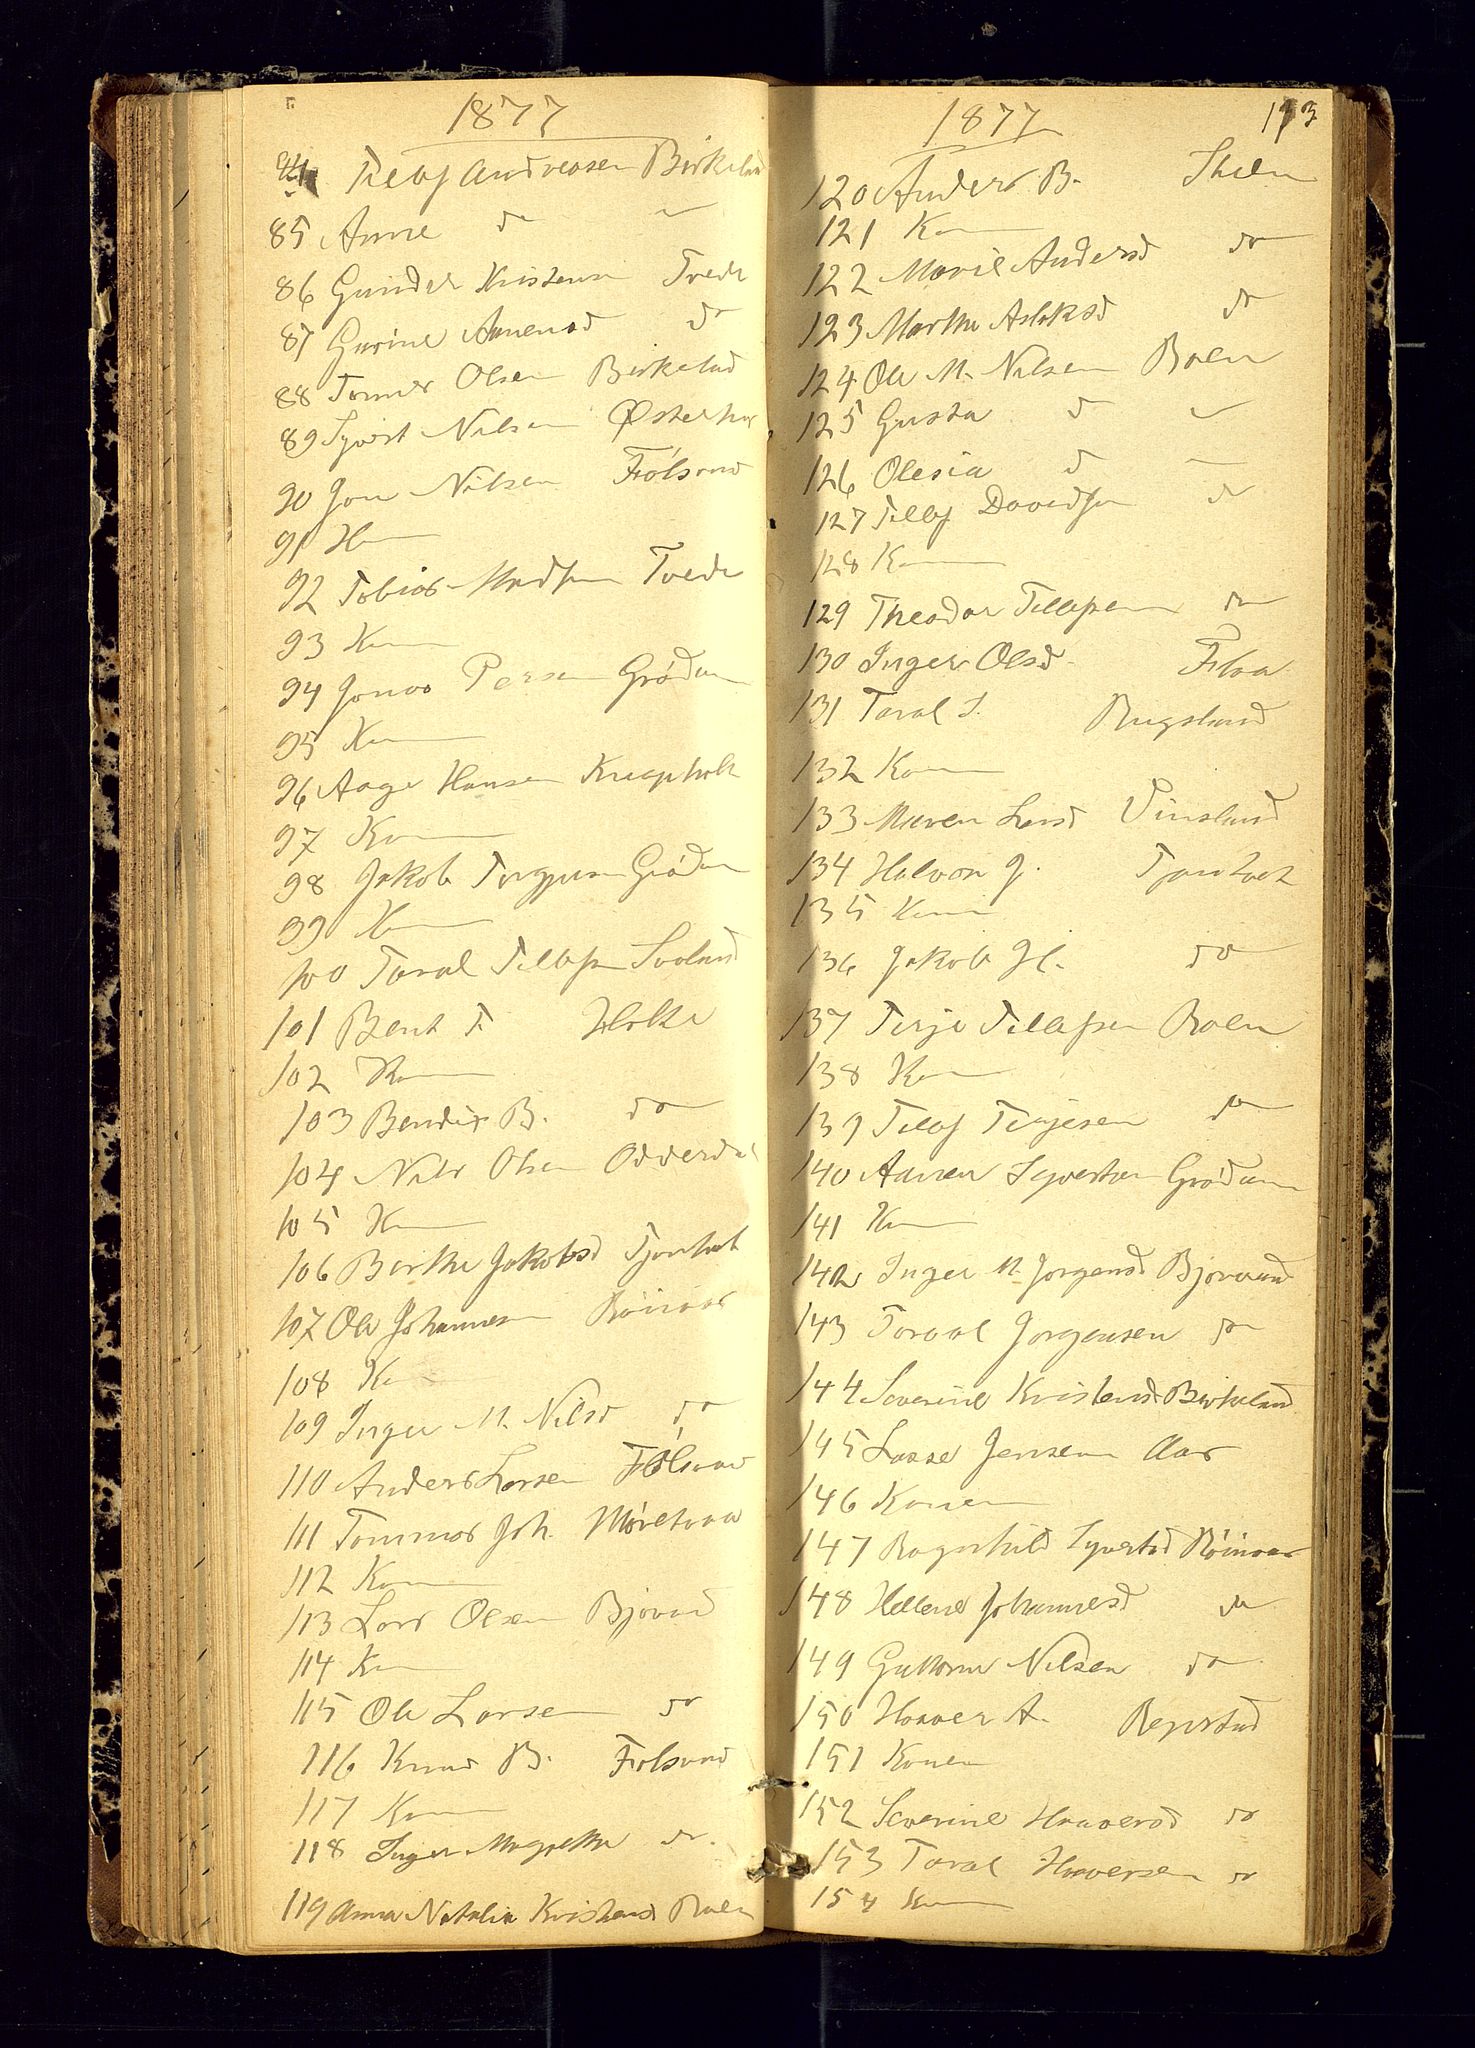 1877
84 Tellef Andreasen Birkeland
85 Anne do
86 Gunder Kristensen Tvede
87 Gurine Aanensd do
88 Tommes Olsen Birkeland
89 Syvert Nilsen Østerhus
90 Jon Nilsen Fidsvand
91 K
92 Tobias Madsen Tvede
93 Kone
94 Jonas Persen Grødum
95 Kone
96 Aage Hansen Knapholt
97 Kone
98 Jakob Torgjusen Grødum
99 Kone
100 Taral Tellefsen Svaland
101 Bent T. Holte
102 Kone
103 Bendix B. do
104 Nils Olsen Odderdal
105 Kone
106 Berthe Jakobsd Tjomhat
107 Ole Johannesen Röinaas
108 Kone
109 Inger M. Nilsd do
110 Anders Larsen
111 Tommas Joh.
112 Kone
113 Lars Olsen Bjorvand
114 Kone
115 Ole Larsen do
116 Knud B.
117 Kone
118 Inger Magrethe do.
119 Anna Natalia Kristensd Boen
1877 193
120 Anders B. Skeen
121 Kone
122 Marie Andersd do
123 Marthe Aslaksd do
124 Ole M. Nilsen Boen
125 Gusta d
126 Olesia d
127 Tellef Davidsen do
128 Kone
129 Theodor Tellefsen do
130 Inger Olsd. Flaa
131 Taral S. Rugsland
132 Kone
133 Maren Larsd Vinsland
134 Halvor J. Tjomhat
135 Kone
136 Jakob H. do
137 Terje Tellefsen Boen
138 Kone
139 Tellef Terjesen do
140 Aanen Syvertsen Grødum
141 Kone
142 Inger M. Jorgensd Bjorvand
143 Taraal Jorgensen do
144 Severine Kristensd Birkeland
145 Lasse Jensen Aas
146 Konen
147 Ragnhild Syvertsd Röinaas
148 Hellene Johannesd do
149 Guttorm Nilsen do
150 Haaver A. Repstad
151 Konen
152 Severine Haaversd do
153 Taral Haaversen do
154 Kone